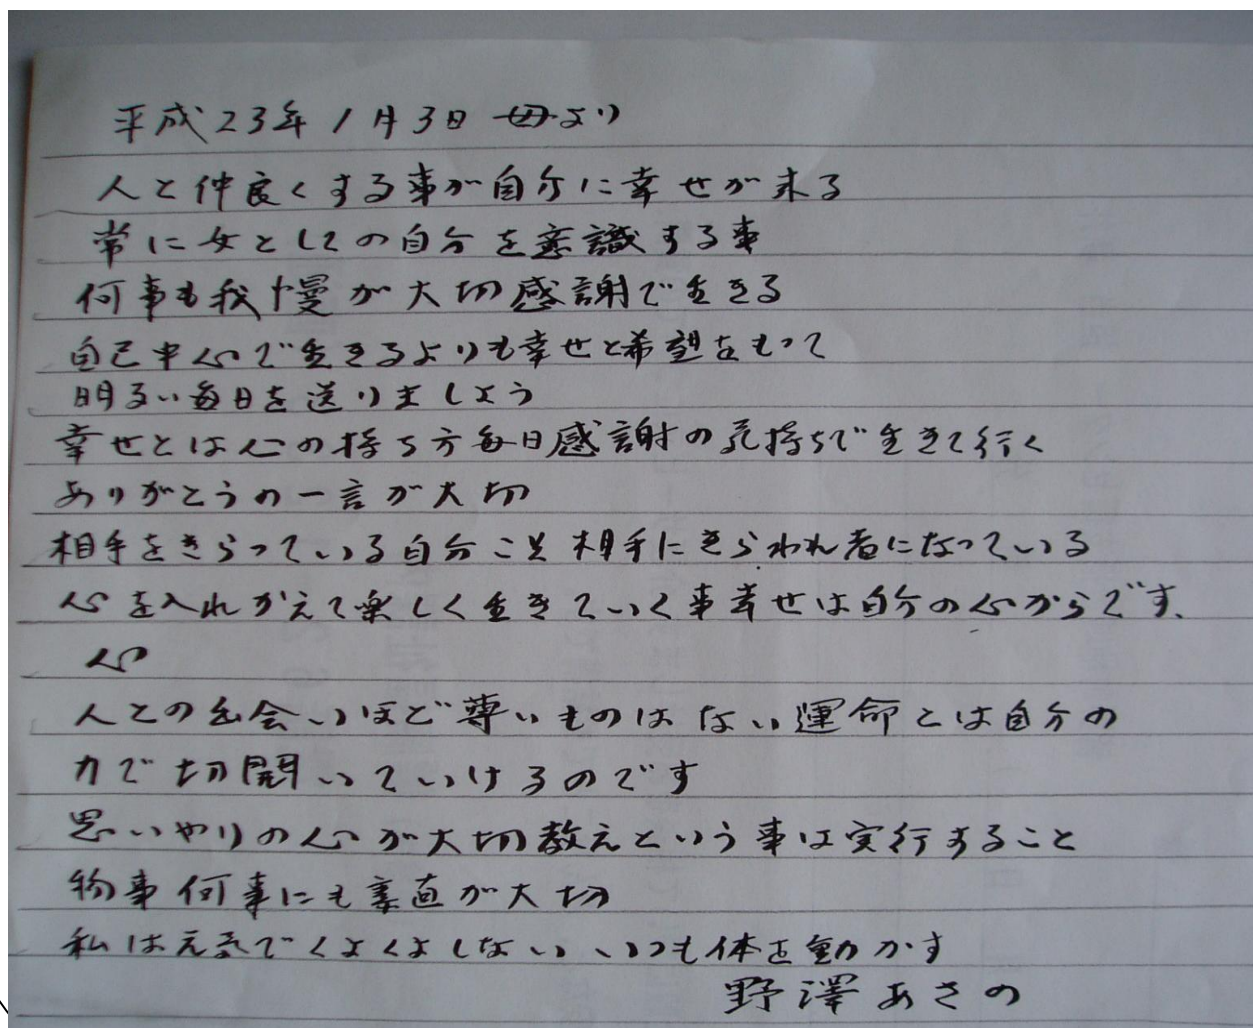 平成23年1月3日 母より
人と仲良くする事が自分に幸せが来る
常に女としての自分を意識する事
何事も我慢が大切感謝で生きる
自己中心で生きるよりも幸せと希望をもって
明るい毎日を送りましょう
幸せとは心の持ち方毎日感謝の気持ちで生きて行く
ありがとうの一言が大切
相手をきらっている自分こそ相手にきらわれ者になっている
心を入れかえて楽しく生きていく事幸せは自分の心からです、
心
人との出会いほど尊いものはない運命とは自分の
力で切開いていけるのです
思いやりの心が大切教えという事は実行すること
物事何事にも素直が大切
私は元気でくよくよしない いつも体を動かす
野澤あさの